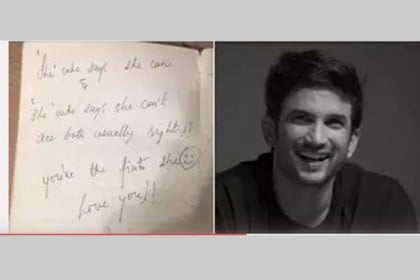 'She' who says she can
&
'She' who says she can't
are both usually right!!
you're the first she
love you!!